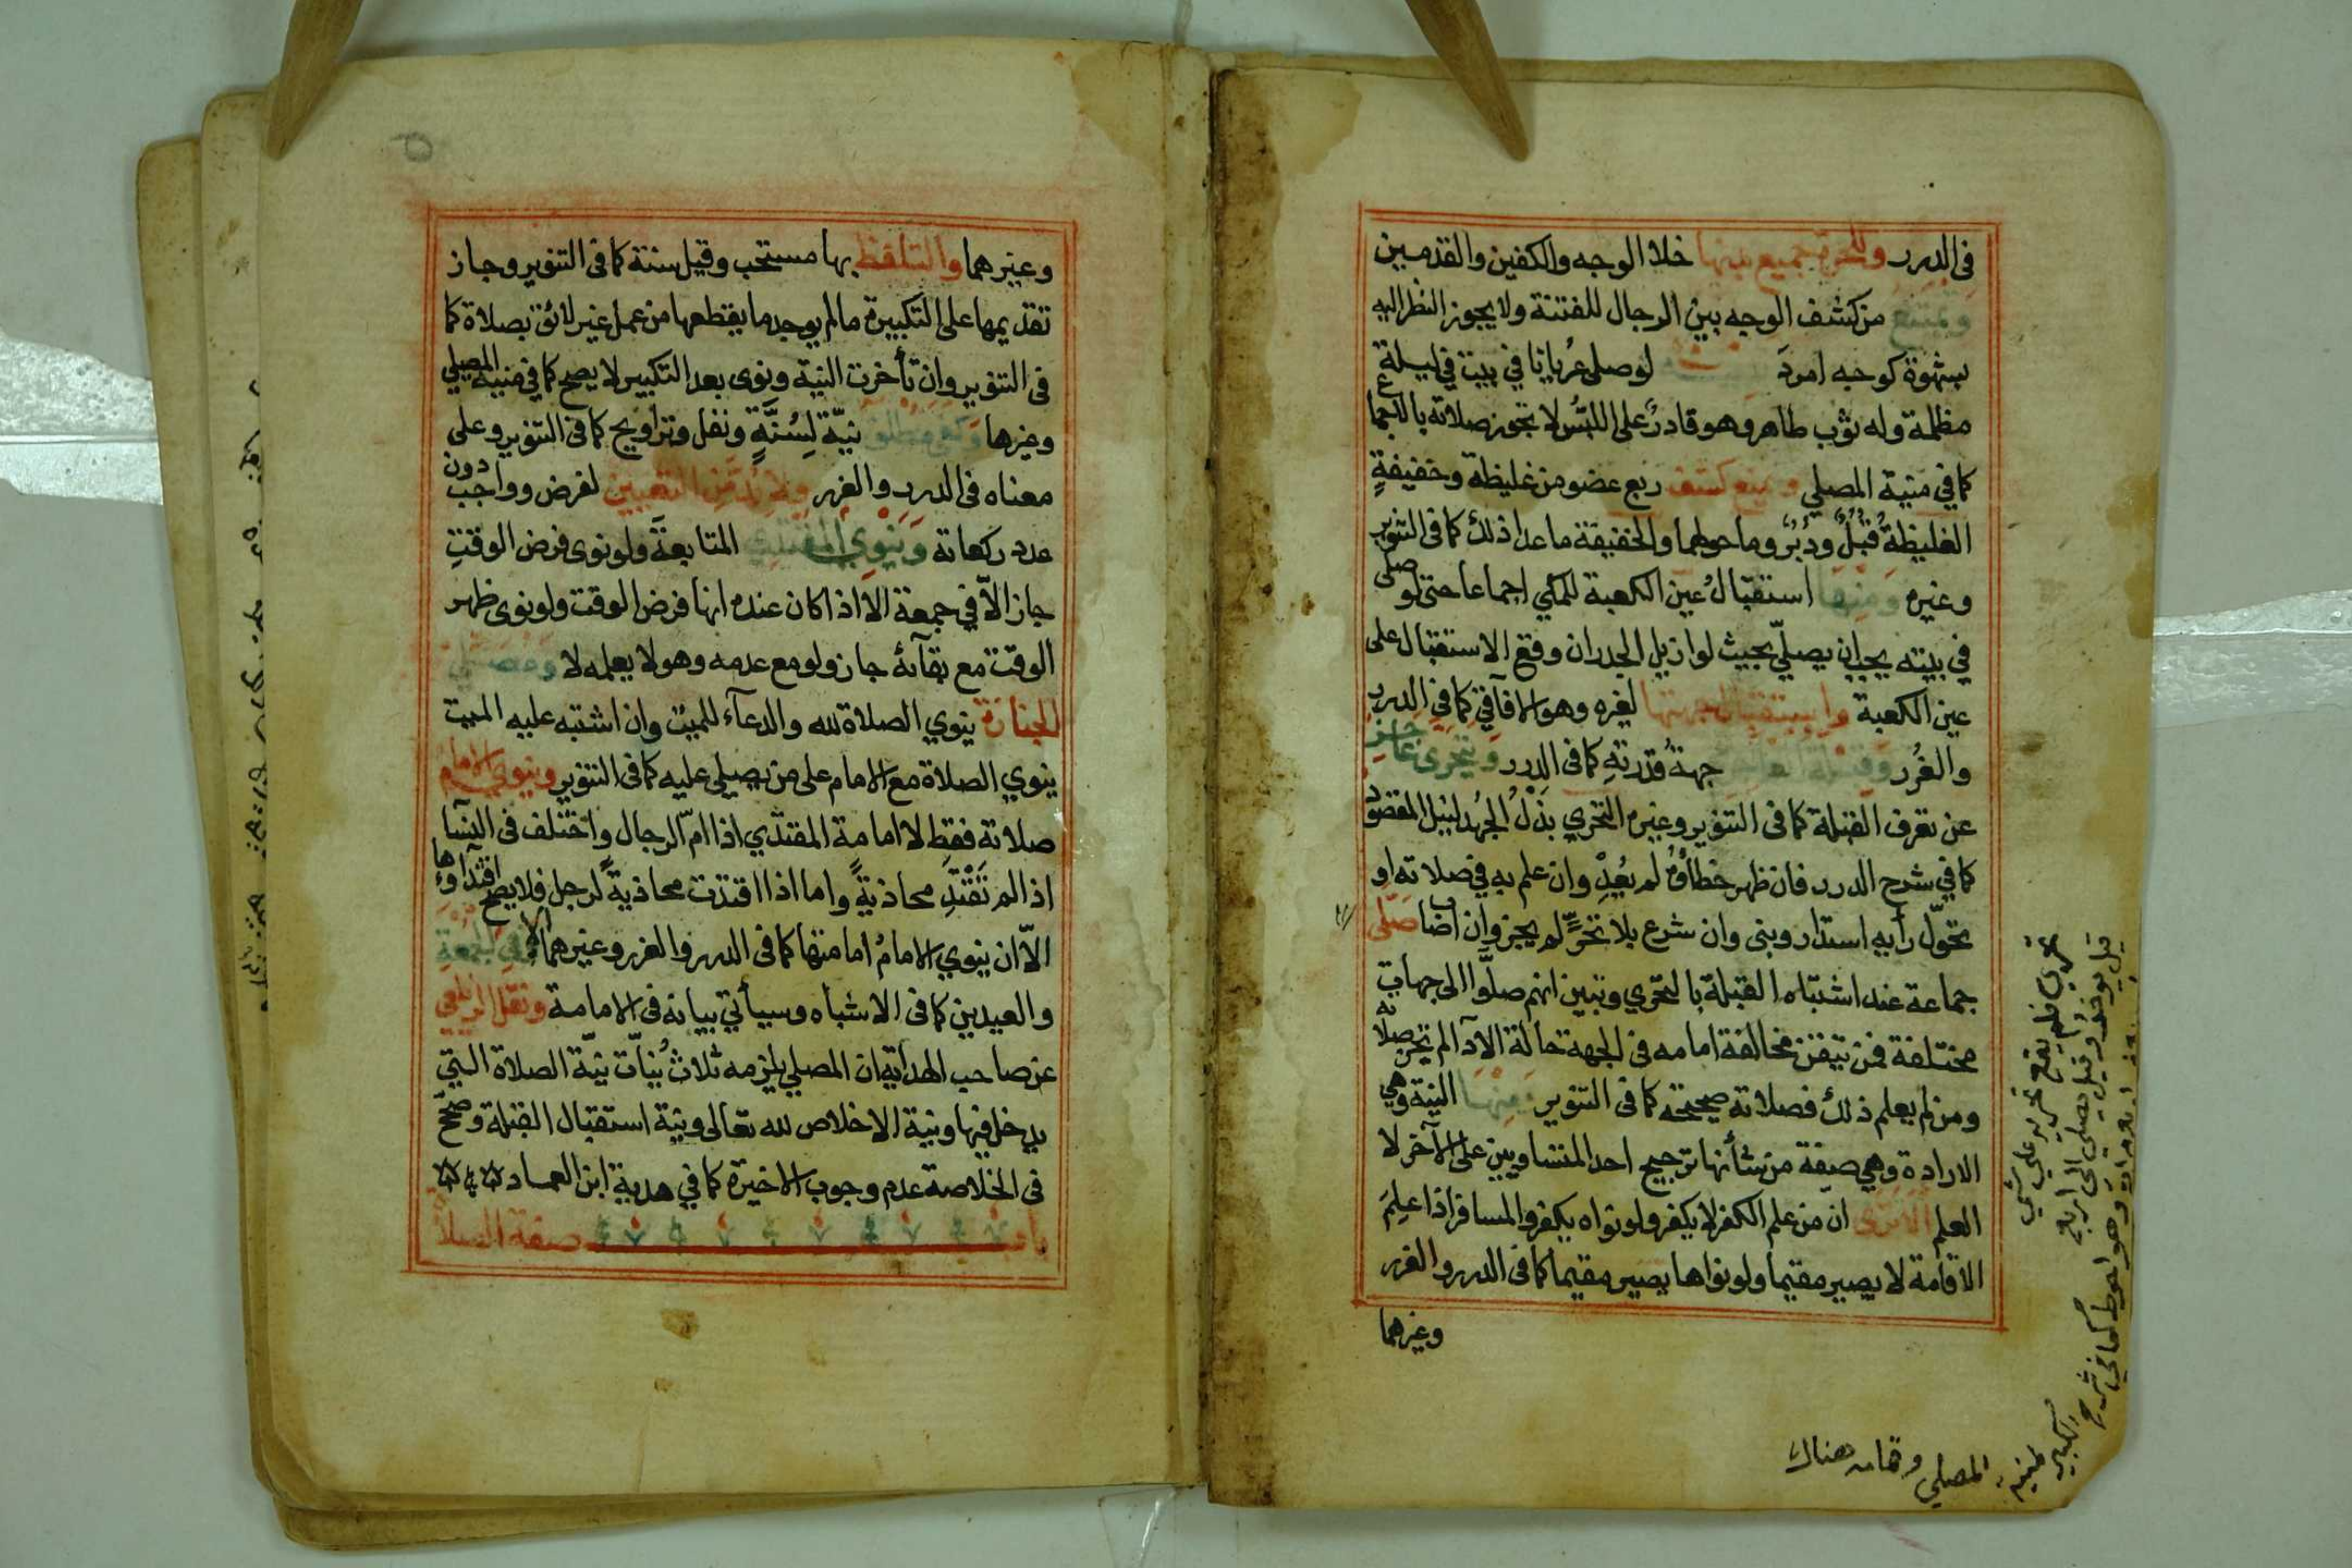 فى الدرر وللحرة جميع بدنها خلا الوجه والكفين والقدمين
وتمنع من كشف الوجه بين الرجال للفتنة ولا يجوز النظر اليه
بشهوة كوجه امرد لو صلى عُريانا في بيت في ليلة
مظلمة وله ثوب طاهر وهو قادر على اللبس لا تجوز صلاته بالاجماع
كما في منية المصلي ويمنع كشف ربع عضو من غليظة وخفيفةٍ
الغليظةُ قُبُلٌ ودُبُرٌ وما حولهما والخفيفة ماعدا ذلك كما فى التنوير
وغيره ومنها استقبالُ عين الكعبة للمكي اجماعا حتى لو صلى
في بيته يجب ان يصلّي بحيث لو ازيل الجدران وقع الاستقبال على
عين الكعبة واستقبال جهتها لغيره وهو الافآقي كما في الدرر
والغُرر وقبلة العاجز جهةُ قُدرتهِ كما فى الدرر ويتحرى عاجز
عن تعرف القبلة كما فى التنوير وغيره التحري بذلُ الجُهد لنيل المقصود
كما في شرح الدرر فان ظهر خطاؤُهُ لم يُعِدْ وان علم به في صلاته او
تحوّل رأيه استدار وبنى وان شرع بلا تحرٍّ لم يجز وان اصاب صَلّى
جماعة عند اشتباه القبلة بالتحري وتبين انهم صلّوا الى جهاتٍ
مختلفة فمن تيقن مخالفة امامه فى الجهة حالة الادآ لم تجز صلاته
ومن لم يعلم ذلك فصلاته صحيحة كما فى التنوير ومنها النية وهي
الارادة وهي صفة من شأنها ترجيح احد المتساويين على الآخر لا
العلم الا ترى ان من علم الكفر لا يكفر ولو نواه يكفر والمسافر اذا علِمَ
الاقامة لا يصير مقيما ولو نواها يصير مقيما كما فى الدرر والغرر
وغيرهما
تحرى فلم يقع تحريه على شي
قيل يوخر وقيل يصلى الى اربع
وهو احوط كما في شرح
الكبير لمنية
المصلي وتمامه هناك
وغيرهما والتلفظ بها مستحب وقيل سنة كما فى التنوير وجاز
تقديمها على التكبيرة مالم يوجد ما يقطعها من عمل غير لائق بصلاة كما
فى التنوير وان تأخرت النية ونوى بعد التكبير لا يصح كما في منية المصلي
وغيرها وكفى مطلق نيّة لِسُنّةٍ ونفل وتراويح كما فى التنوير وعلى
معناه فى الدرر والغرر ولا بد من التعيين لفرض وواجب دون
عدد ركعاته وينوي المقتدي المتابعةَ ولو نوى فرض الوقتِ
جاز الاّ في جمعة الا اذا كان عنده انها فرض الوقت ولو نوى ظهر
الوقت مع بقآئه جاز ولو مع عدمه وهو لا يعلمه لا ومصلي
الجنازة ينوي الصلاة لله والدعآء للميت وان اشتبه عليه الميت
ينوي الصلاة مع الامام على من يصلي عليه كما فى التنوير وينوي الامام
صلاته فقط لا امامة المقتدي اذا امّ الرجال واختلف فى النسا
اذا لم تَقْتَدِ محاذيةٍ واما اذا اقتدت محاذيةً لرجل فلا يصح اقتداوها
الاّ ان ينوي الامامُ امامتها كما فى الدرر والغرر وغيرهما الا في الجمعةِ
والعيدين كما فى الاشباه وسيأتي بيانه فى الامامة ونقل الزيلعي
عن صاحب الهداية ان المصلي يلزمه ثلاثُ نيّات نيّة الصلاة التي
يدخل فيها ونية الاخلاص لله تعالى ونية استقبال القبلة وصحّح
فى الخلاصة عدم وجوب الاخيرة كما في هدية ابن العماد
باب صفة الصلاة